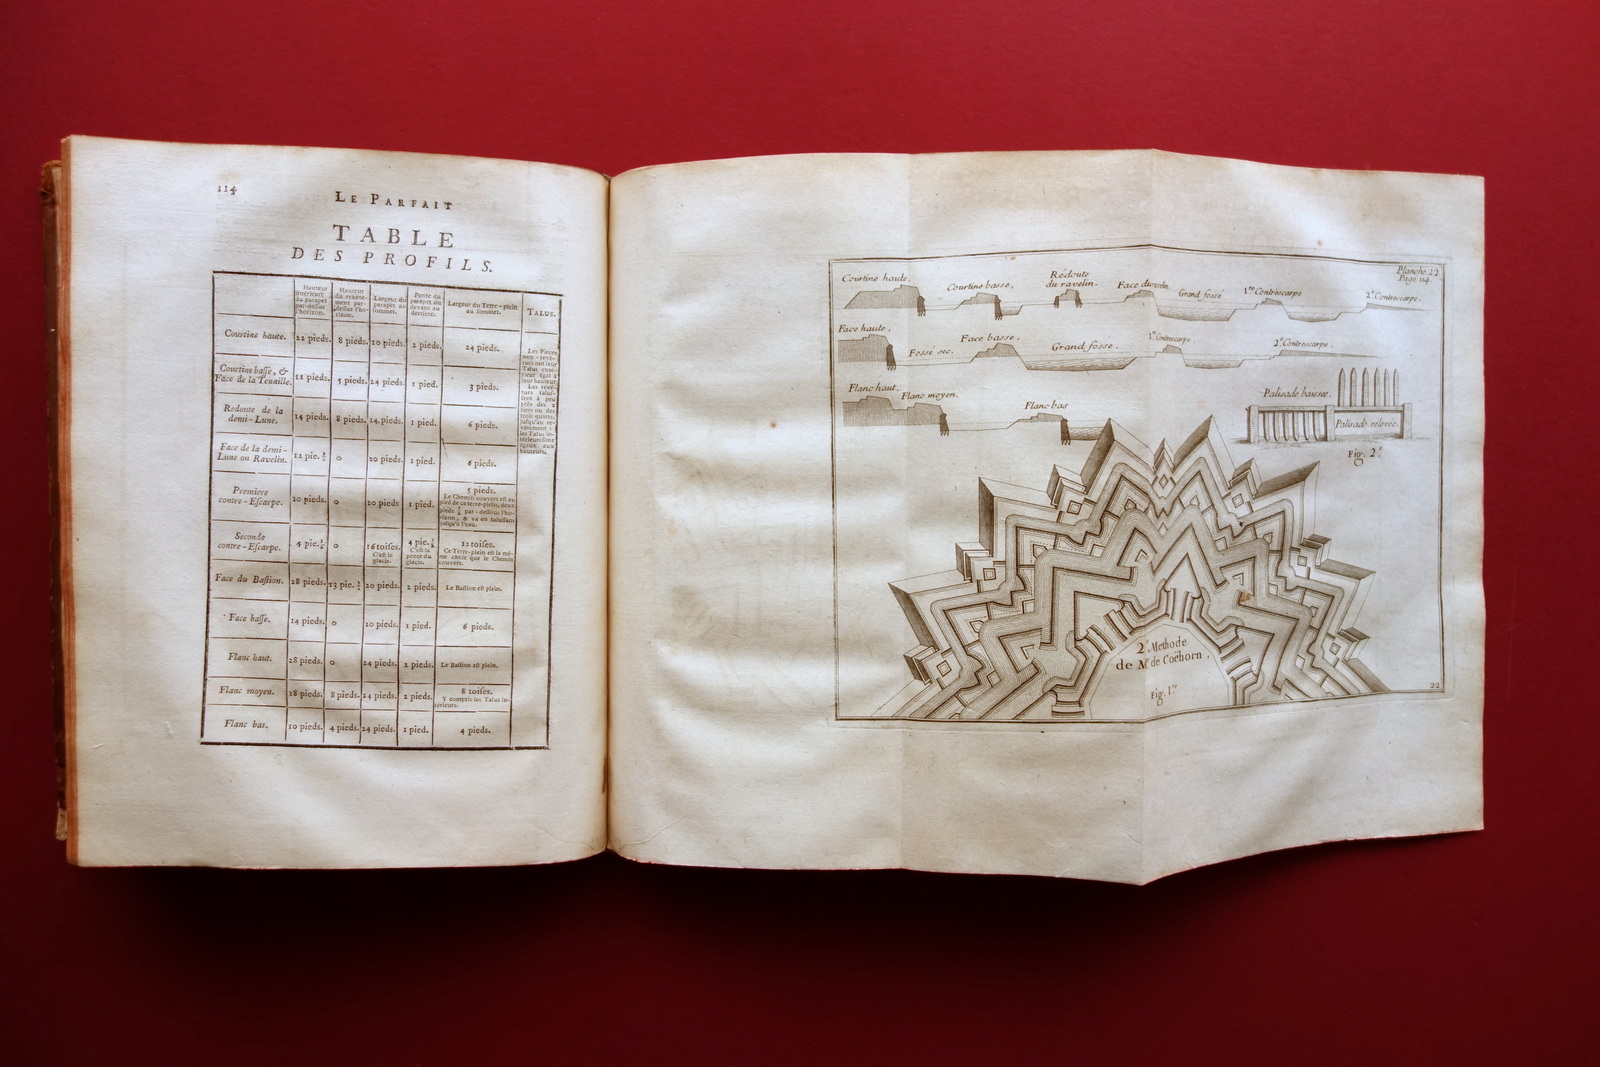 114
LE PARFAIT
TABLE
DES PROFILS.
Hauteur intérieure du parapet par-dessus l'horizon.
Hauteur du revêtement par-dessus l'horizon.
Largeur du parapet au sommet.
Pente du parapet du devant au derriere.
Largeur du Terre-plein au sommet.
TALUS.
Courtine haute. 22 pieds. 8 pieds. 20 pieds. 2 pieds. 24 pieds.
Courtine basse, &
Face de la Tenaille. 11 pieds. 5 pieds. 24 pieds. 1 pied. 3 pieds.
Redoute de la
demi-Lune. 14 pieds. 8 pieds. 14 pieds. 1 pied. 6 pieds.
Face de la demi-
Lune ou Ravelin. 12 pie. ½ 0 20 pieds. 1 pied. 6 pieds.
Premiere
contre-Escarpe. 10 pieds. 0 20 pieds. 1 pied. 5 pieds.
Le Chemin couvert est au
pied de ce terre-plein, deux
pieds ½ par-dessous l'ho-
rizon, & va en talussant
jusqu'à l'eau.
Seconde
contre-Escarpe. 4 pie. ½ 0 16 toises. 4 pie. ½ 12 toises.
C'est le
glacis.
C'est la
pente du
glacis.
Ce Terre-plein est la mê-
me chose que le Chemin
couvert.
Face du Bastion. 28 pieds. 13 pie. ½ 20 pieds. 2 pieds. Le Bastion est plein.
Face basse. 14 pieds. 0 10 pieds. 1 pied. 6 pieds.
Flanc haut. 28 pieds. 0 24 pieds. 2 pieds. Le Bastion est plein.
Flanc moyen. 18 pieds. 8 pieds. 24 pieds. 2 pieds. 8 toises.
Y compris les Talus in-
térieurs.
Flanc bas. 10 pieds. 4 pieds. 24 pieds. 1 pied. 4 pieds.
Les Pieces
non-revê-
tues ont leur
Talus exté-
rieur égal à
leur hauteur.
Les revê-
tues talus-
sent à peu
près des 2
tiers ou des
trois quarts,
jusqu'au re-
vêtement :
les Talus in-
térieurs sont
égaux aux
hauteurs.
Planche. 22
Page. 114.
Courtine haute.
Courtine basse.
Rédoute
du ravelin.
Face du ravelin.
Grand fossé
1re Contrescarpe
2e Contrescarpe.
Face haute.
Fossé sec.
Face basse.
Grand fosse.
1re Contrescarpe
2e Contrescarpe.
Flanc haut.
Flanc moyen.
Flanc bas
Palisade baissée.
Palisade relevée.
Fig. 2e
2e Methode
de Mr de Coëhorn.
Fig. 1re
22